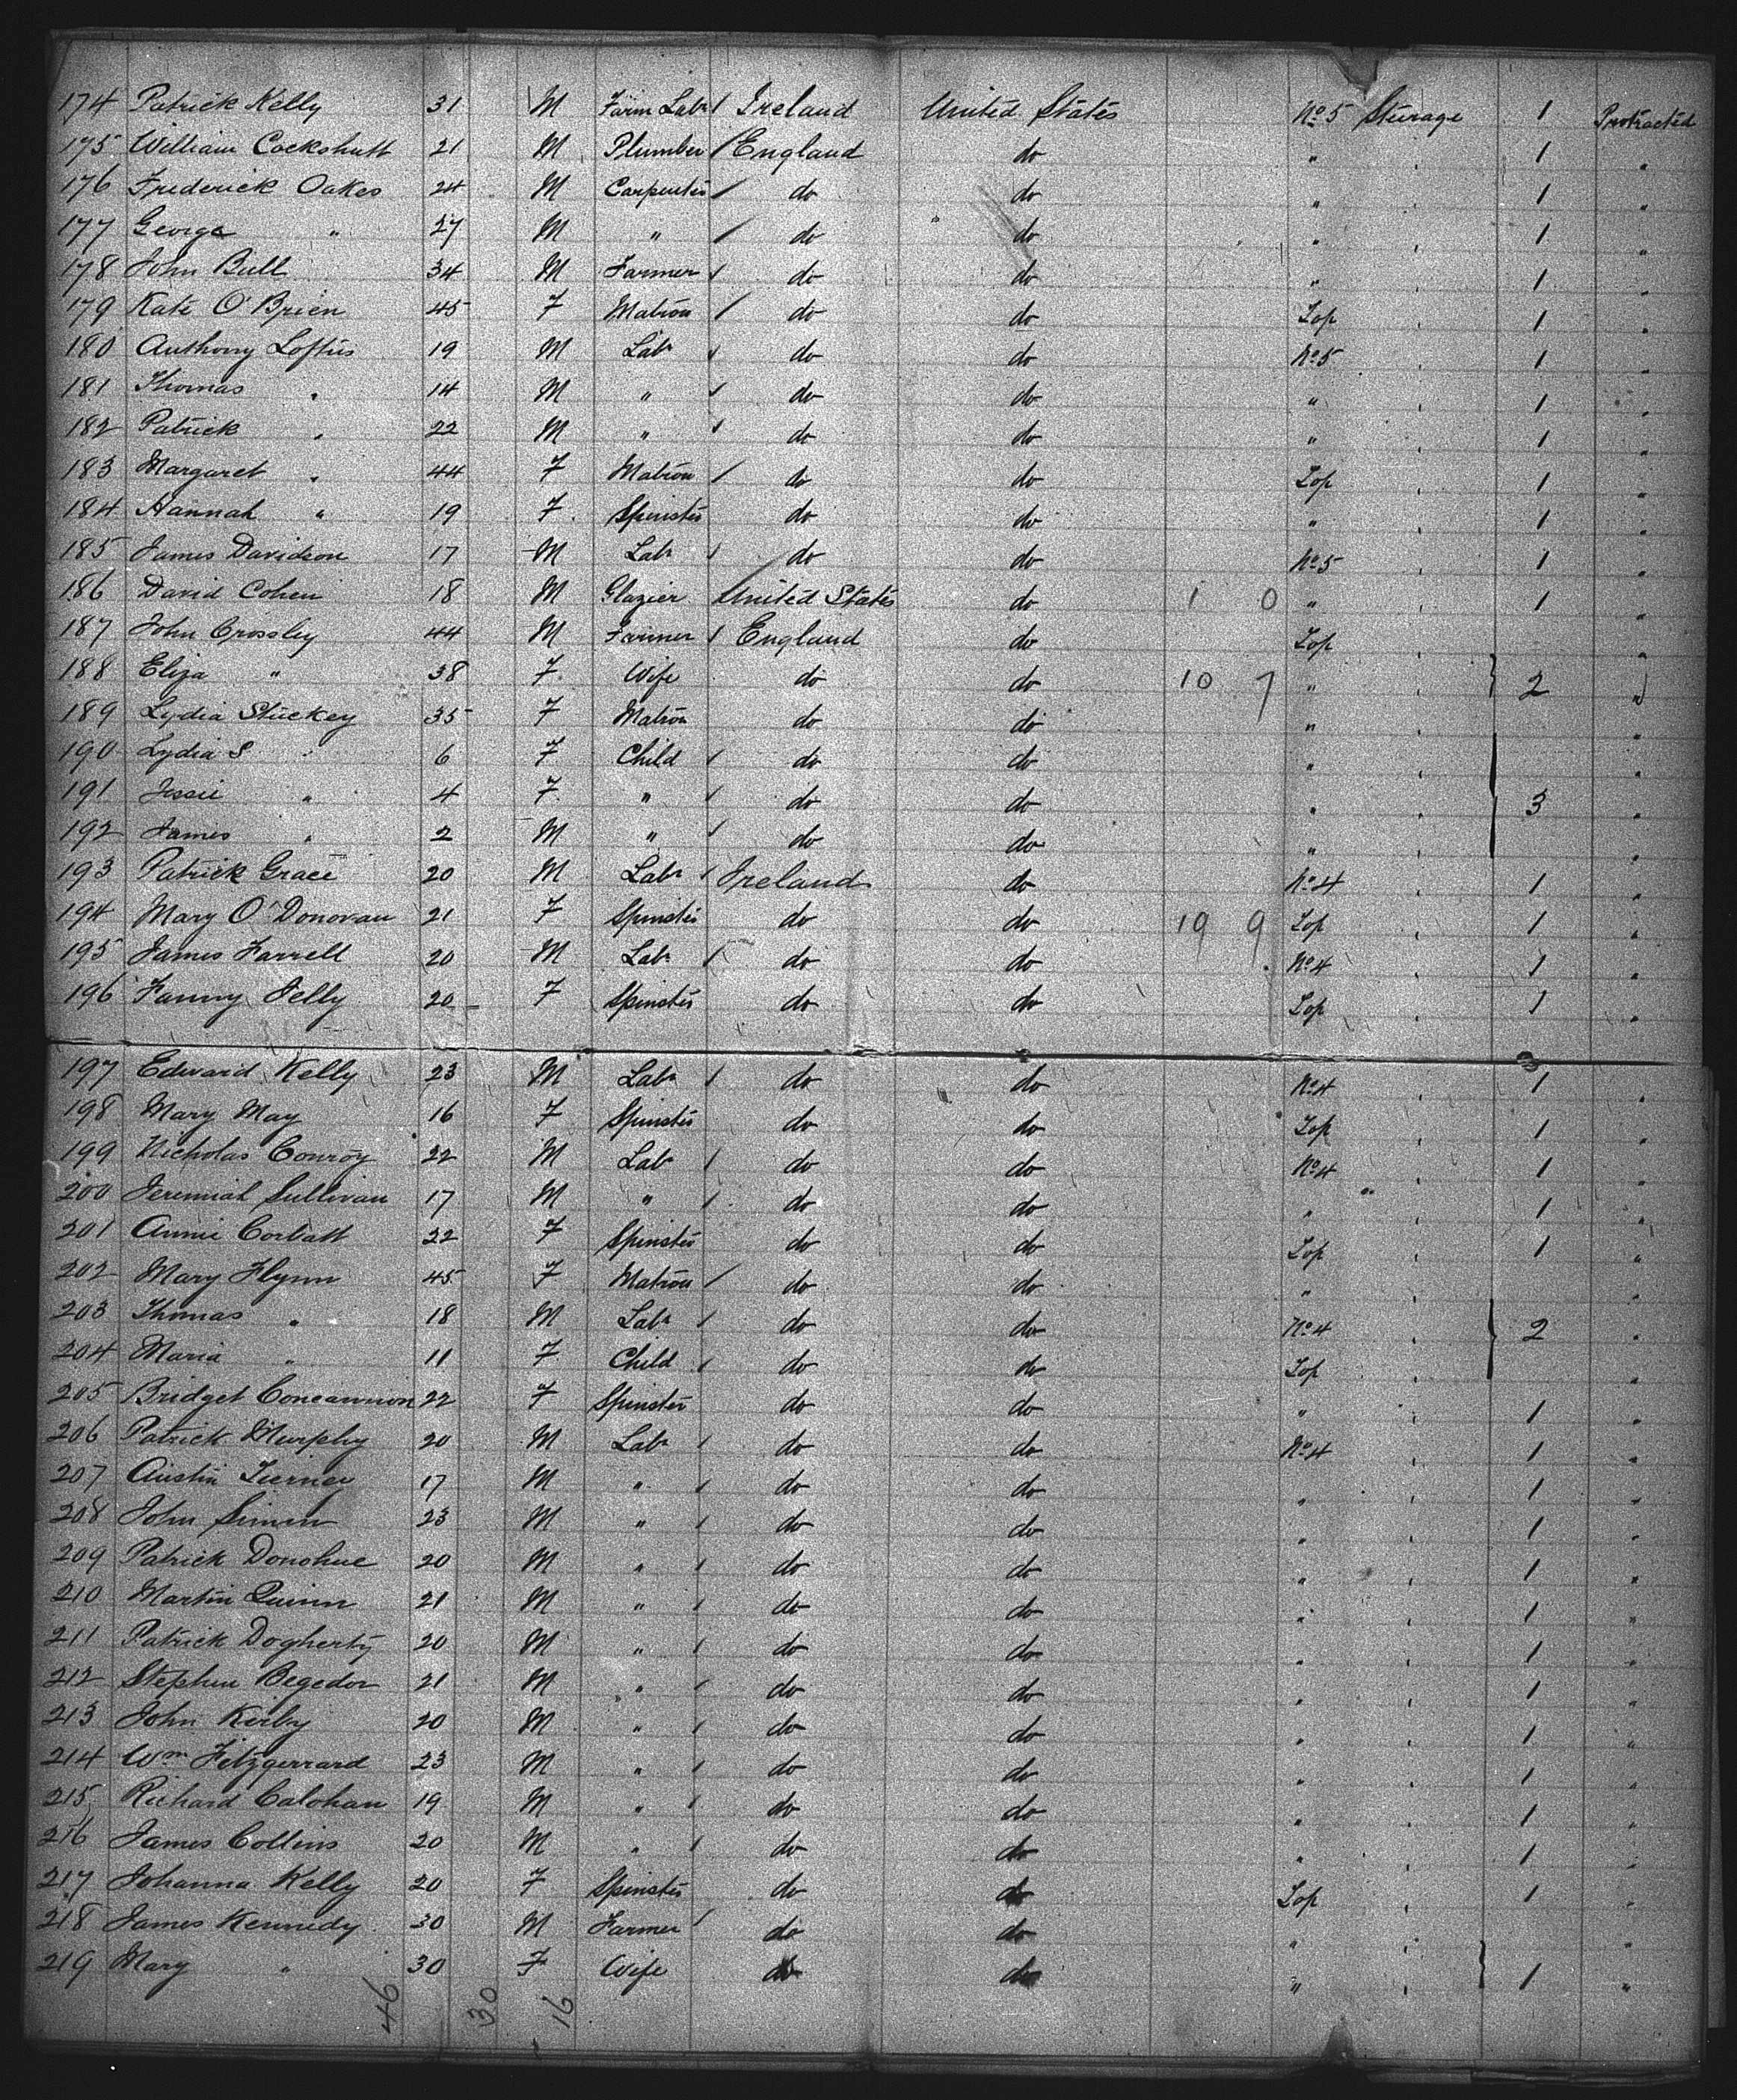 174 Patrick Kelly 31 M Farm Labr / Ireland United States No 5 Steerage 1 Protracted
175 William Cockshutt 21 M Plumber / England do " " 1 "
176 Frederick Oakes 24 M Carpenter / do do " " 1 "
177 George " 27 M " / do do " " 1 "
178 John Bull 34 M Farmer / do do " " 1 "
179 Kate O'Brien 45 F Matron / do do Top " 1 "
180 Anthony Loftus 19 M Labr / do do No 5 " 1 "
181 Thomas " 14 M " / do do " " 1 "
182 Patrick " 22 M " / do do " " 1 "
183 Margaret " 44 F Matron / do do Top " 1 "
184 Hannah " 19 F Spinster do do " " 1 "
185 James Davidson 17 M Labr / do do No 5 " 1 "
186 David Cohen 18 M Glazier United States do 1 0 " " 1 "
187 John Crossley 44 M Farmer / England do Top " "
188 Eliza " 38 F Wife do do 10 7 " " } 2 "
189 Lydia Stuckey 35 F Matron do do " " "
190 Lydia S " 6 F Child / do do " " "
191 Jessie " 4 F " / do do " " 3 "
192 James " 2 M " / do do " " "
193 Patrick Grace 20 M Labr / Ireland do No 4 " 1 "
194 Mary O'Donovan 21 F Spinster do do 19 9 Top " 1 "
195 James Farrell 20 M Labr / do do No 4 " 1 "
196 Fanny Jelly 20 F Spinster do do Top " 1 "
197 Edward Kelly 23 M Labr / do do No 4 " 1 "
198 Mary May 16 F Spinster do do Top " 1 "
199 Nicholas Conroy 22 M Labr / do do No 4 " 1 "
200 Jeremiah Sullivan 17 M " / do do " " 1 "
201 Annie Corbatt 22 F Spinster do do Top " 1 "
202 Mary Flynn 45 F Matron / do do " " "
203 Thomas " 18 M Labr / do do No 4 " } 2 "
204 Maria " 11 F Child / do do Top " "
205 Bridget Concannion 22 F Spinster do do " " 1 "
206 Patrick Murphy 20 M Labr / do do No 4 " 1 "
207 Austin Tierney 17 M " / do do " " 1 "
208 John 23 M " / do do " " 1 "
209 Patrick Donohue 20 M " / do do " " 1 "
210 Martin Quinn 21 M " / do do " " 1 "
211 Patrick Dogherty 20 M " / do do " " 1 "
212 Stephen Begedor 21 M " / do do " " 1 "
213 John Kirby 20 M " / do do " " 1 "
214 Wm Fitzgerrard 23 M " / do do " " 1 "
215 Richard Calohan 19 M " / do do " " 1 "
216 James Collins 20 M " / do do " " 1 "
217 Johanna Kelly 20 F Spinster do do Top " 1 "
218 James Kennedy 30 M Farmer / do do " " "
219 Mary " 30 F Wife do do " " } 1 "
46 30 16